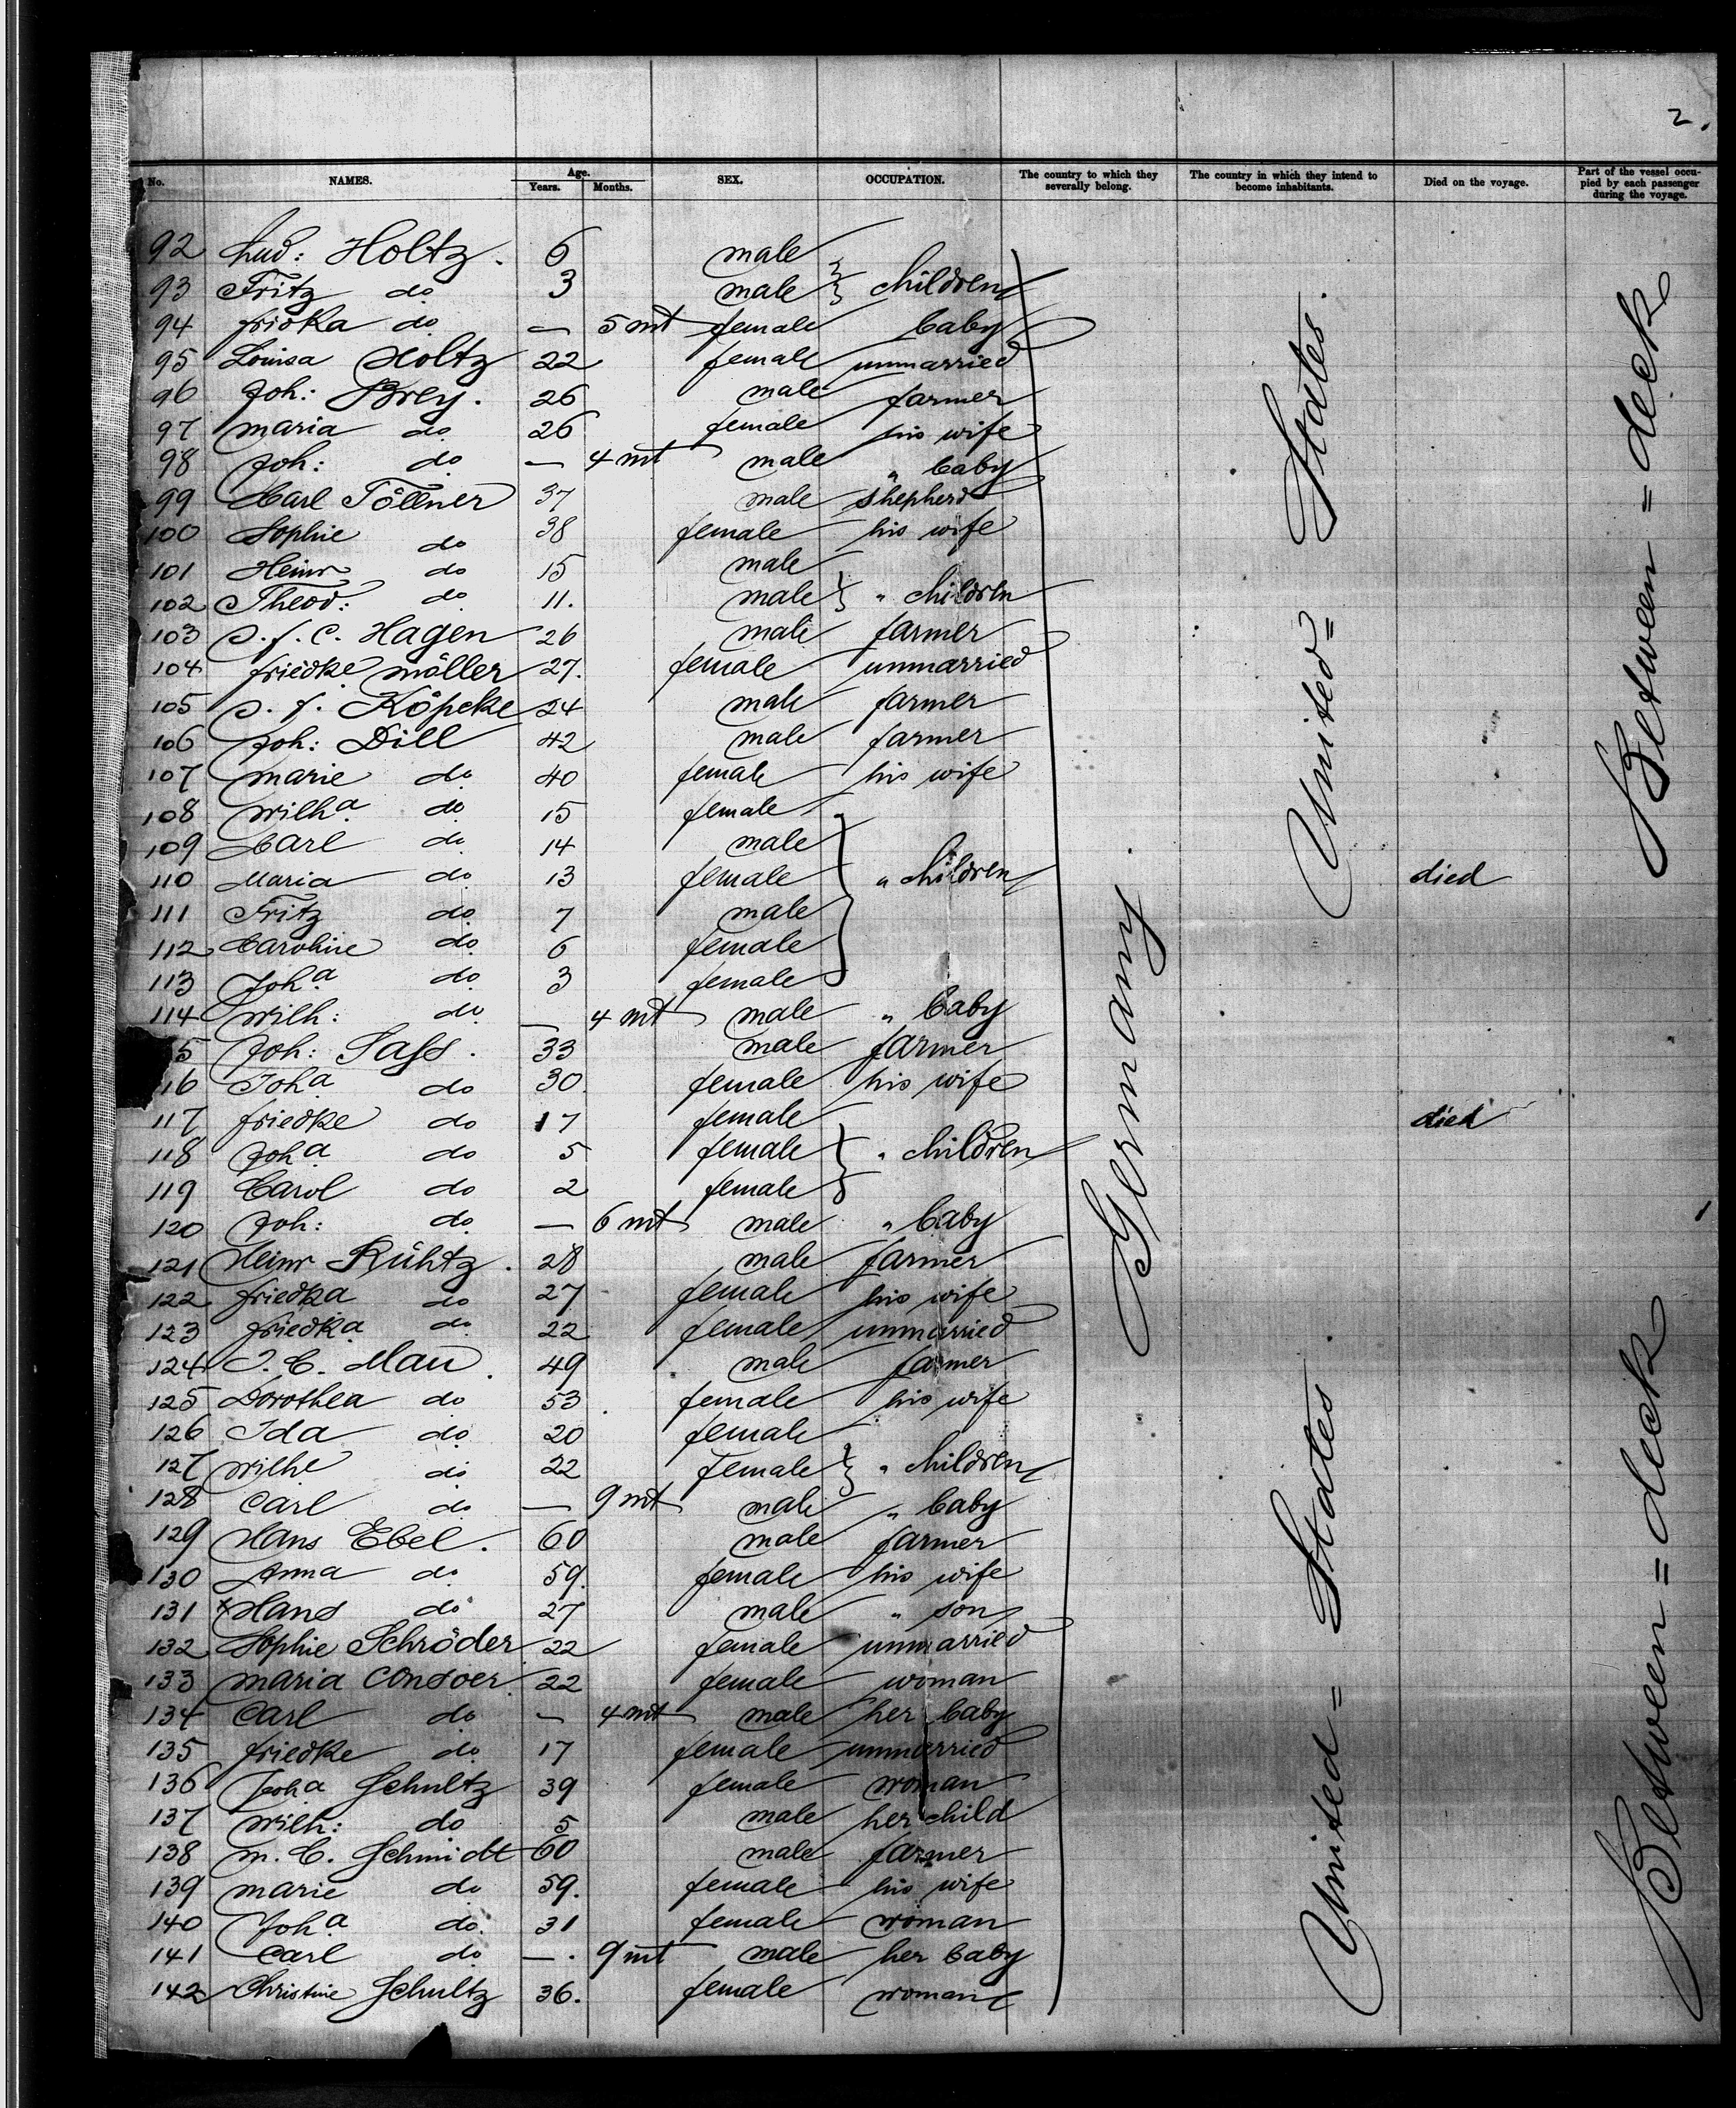 2.
No. NAMES. Age. Years. Months. SEX. OCCUPATION. The country to which they severally belong. The country in which they intend to become inhabitants. Died on the voyage. Part of the vessel occupied by each passenger during the voyage.
92 Lud: Holtz. 6 male
93 Fritz do 3 male children
94 fridka do — 5 mt female baby
95 Louisa Holtz 22 female unmarried
96 Joh: Brey. 26 male farmer
97 maria do 26 female his wife
98 Joh: do — 4 mt male " baby
99 Carl Töllner 37 male shepherd
100 Sophie do 38 female his wife
101 Heinr do 15 male
102 Theod: do 11. male " children
103 J. f. C. Hagen 26 male farmer
104 friedke möller 27. female unmarried
105 J. f. Köpcke 24 male farmer
106 Joh: Dill 42 male farmer
107 marie do 40 female his wife
108 wilha do 15 female
109 Carl do 14 male
110 Maria do 13 female " children died
111 Fritz do 7 male
112 Caroline do 6 female
113 Joha do 3 female
114 wilh: do — 4 mt male " baby
5 Joh: Sass. 33 male farmer
16 Joha do 30. female his wife
117 friedke do 17 female died
118 Joha do 5 female " children
119 Carol do 2 female
120 Joh: do — 6 mt male " baby
121 Heinr Rühtz. 28 male farmer
122 friedka do 27 female his wife
123 friedka do 22 female unmarried
124 J. C. Mau. 49 male farmer
125 Dorothea do 53 female his wife
126 Ida do 20 female
127 wilhe do 22 female " children
128 Carl do — 9 mt male " baby
129 Hans Ebel. 60 male farmer
130 Anna do 59. female his wife
131 x Hans do 27 male " son
132 Sophie Schröder 22 female unmarried
133 maria 22 female woman
134 Carl do — 4 mt male her baby
135 friedke do 17 female unmarried
136 Joha Schultz 39 female woman
137 wilh: do 5 male her child
138 m. C. Schmidt 60 male farmer
139 marie do 59. female his wife
140 Joha do. 31 female woman
141 Carl do —. 9 mt male her baby
142 Christine Schultz 36. female woman
Germany.
United= States.
United= States
Between = deck
Between = deck